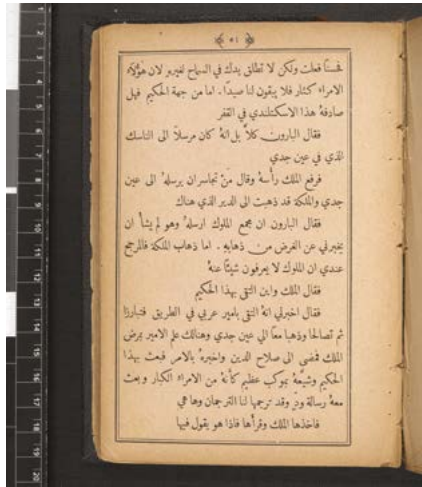 ﴿ ٥٤ ﴾
فحسنًا فعلت ولكن لا تطلق يدك في السماح لغيرهِ لان هؤلاء
الامراء كثار فلا يبقون لنا صيدًا. اما من جهة الحكيم فهل
صادفهُ هذا الاسكتلندي في القفر
فقال البارون كلاَّ بل انهُ كان مرسلاً الى الناسك
الذي في عين جدي
فرفع الملك رأسهُ وقال مَنْ تجاسر ان يرسلهُ الى عين
جدي والملكة قد ذهبت الى الدير الذي هناك
فقال البارون ان مجمع الملوك ارسلهُ وهو لم يشأ ان
يخبرني عن الغرض من ذهابهِ. اما ذهاب الملكة فالمرجح
عندي ان الملوك لا يعرفون شيئًا عنهُ
فقال الملك واين التقى بهذا الحكيم
فقال اخبرني انهُ التقى بامير عربي في الطريق فتبارزا
ثم تصالحا وذهبا معًا الى عين جدي وهنالك علم الامير بمرض
الملك فمضى الى صلاح الدين واخبرهُ بالامر فبعث بهذا
الحكيم وشيَّعهُ بموكب عظيم كأنهُ من الامراء الكبار وبعث
معهُ رسالة ودٍّ وقد ترجمها لنا الترجمان وها هي
فاخذها الملك وقرأها فاذا هو يقول فيها